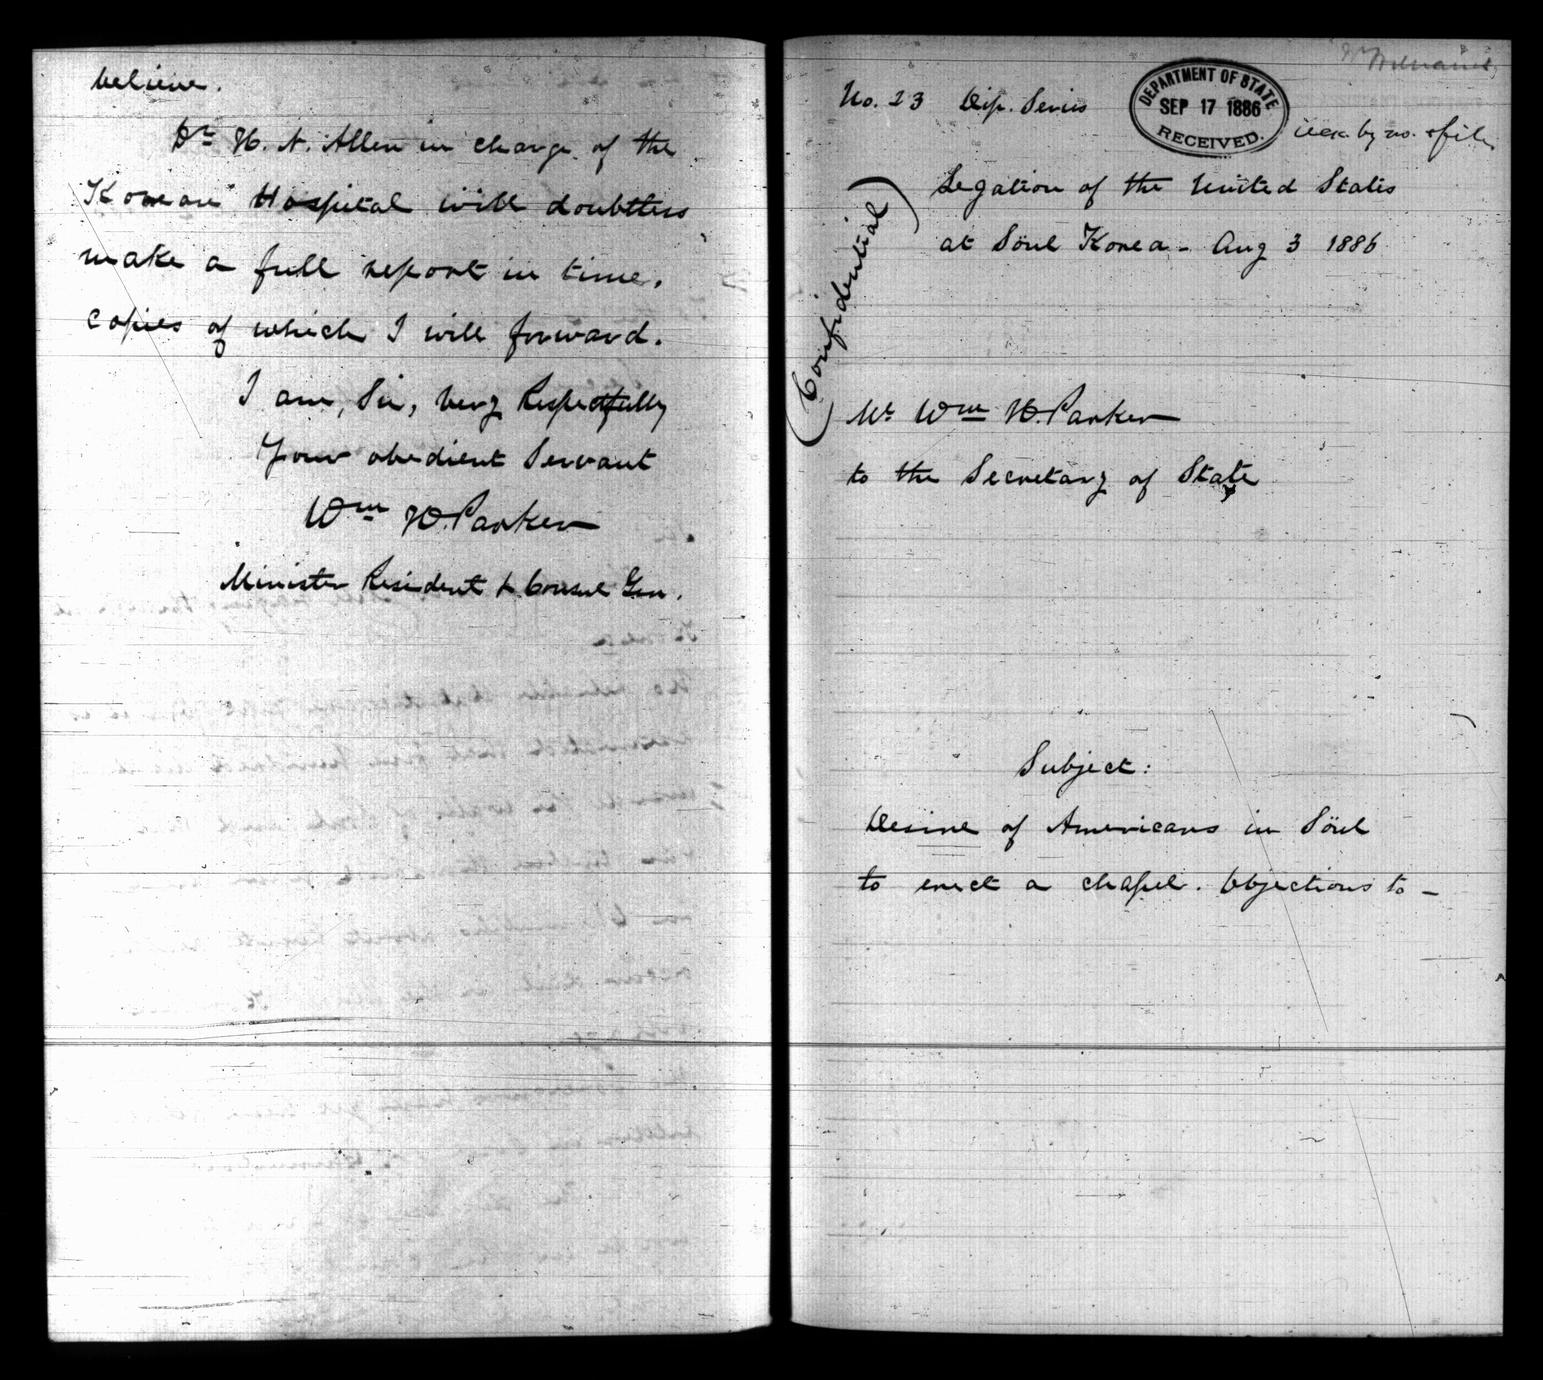 believe.
Dr H. N. Allen in charge of the
Korean Hospital will doubtless
make a full report in time,
copies of which I will forward.
I am, Sir, very Respectfully
Your obedient Servant
Wm H. Parker
Minister Resident & Consul Gen.
No. 23 Dip. Series
DEPARTMENT OF STATE
SEP 17 1886
RECEIVED.
by no. & file
(Confidential)
Legation of the United States
at Söul Korea - Aug 3 1886
Mr Wm H. Parker
to the Secretary of State
Subject:
Desire of Americans in Söul
to erect a chapel. Objections to -